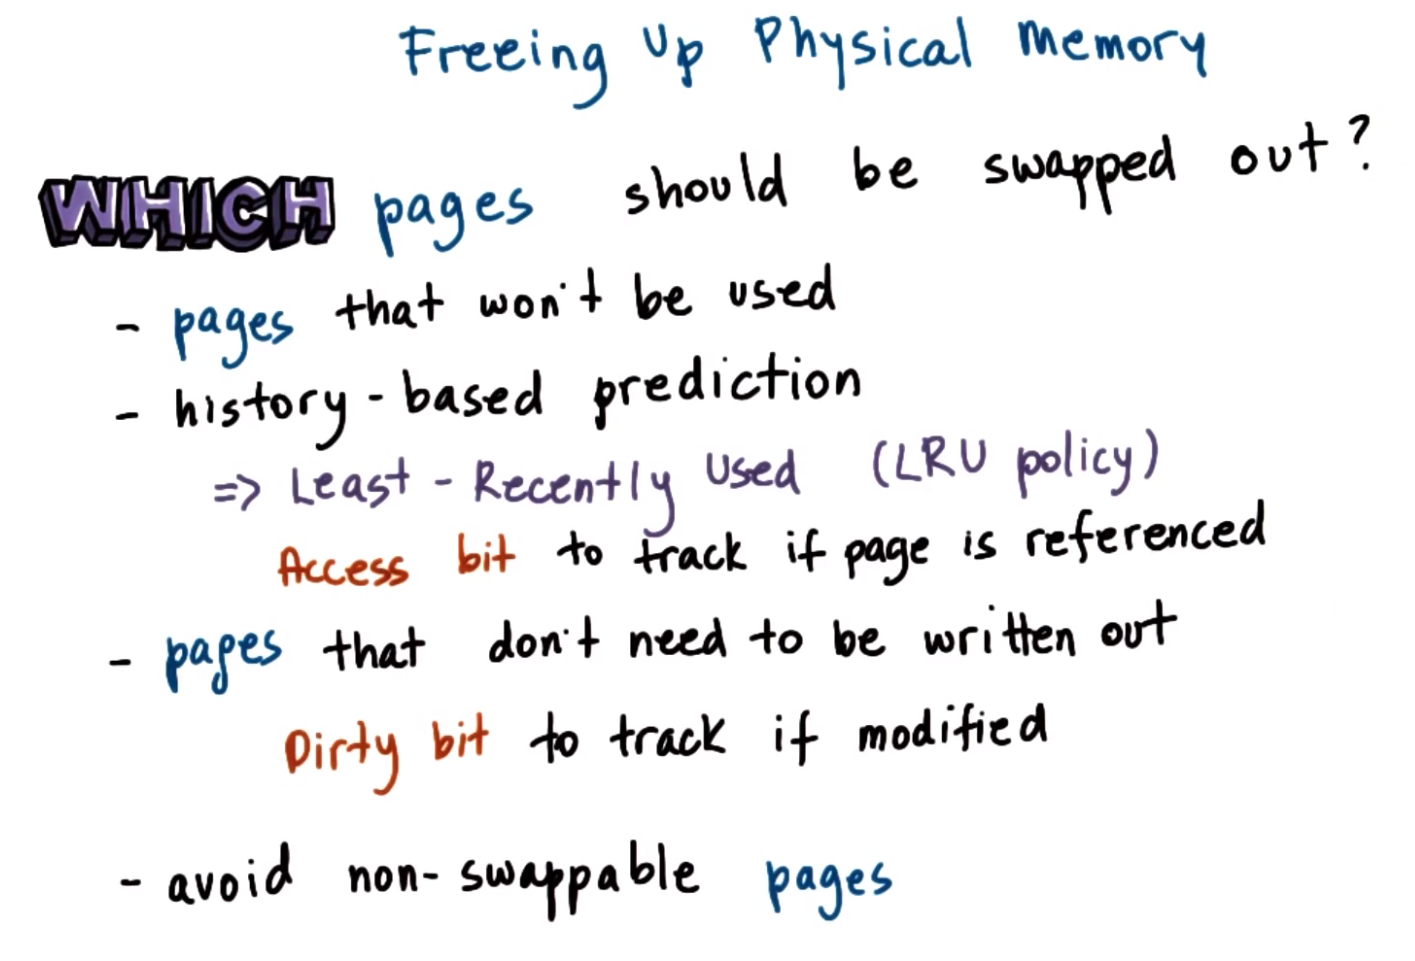 Freeing Up Physical Memory
WHICH pages should be swapped out?
- pages that won't be used
- history-based prediction
=> Least-Recently Used (LRU policy)
Access bit to track if page is referenced
- pages that don't need to be written out
Dirty bit to track if modified
- avoid non-swappable pages